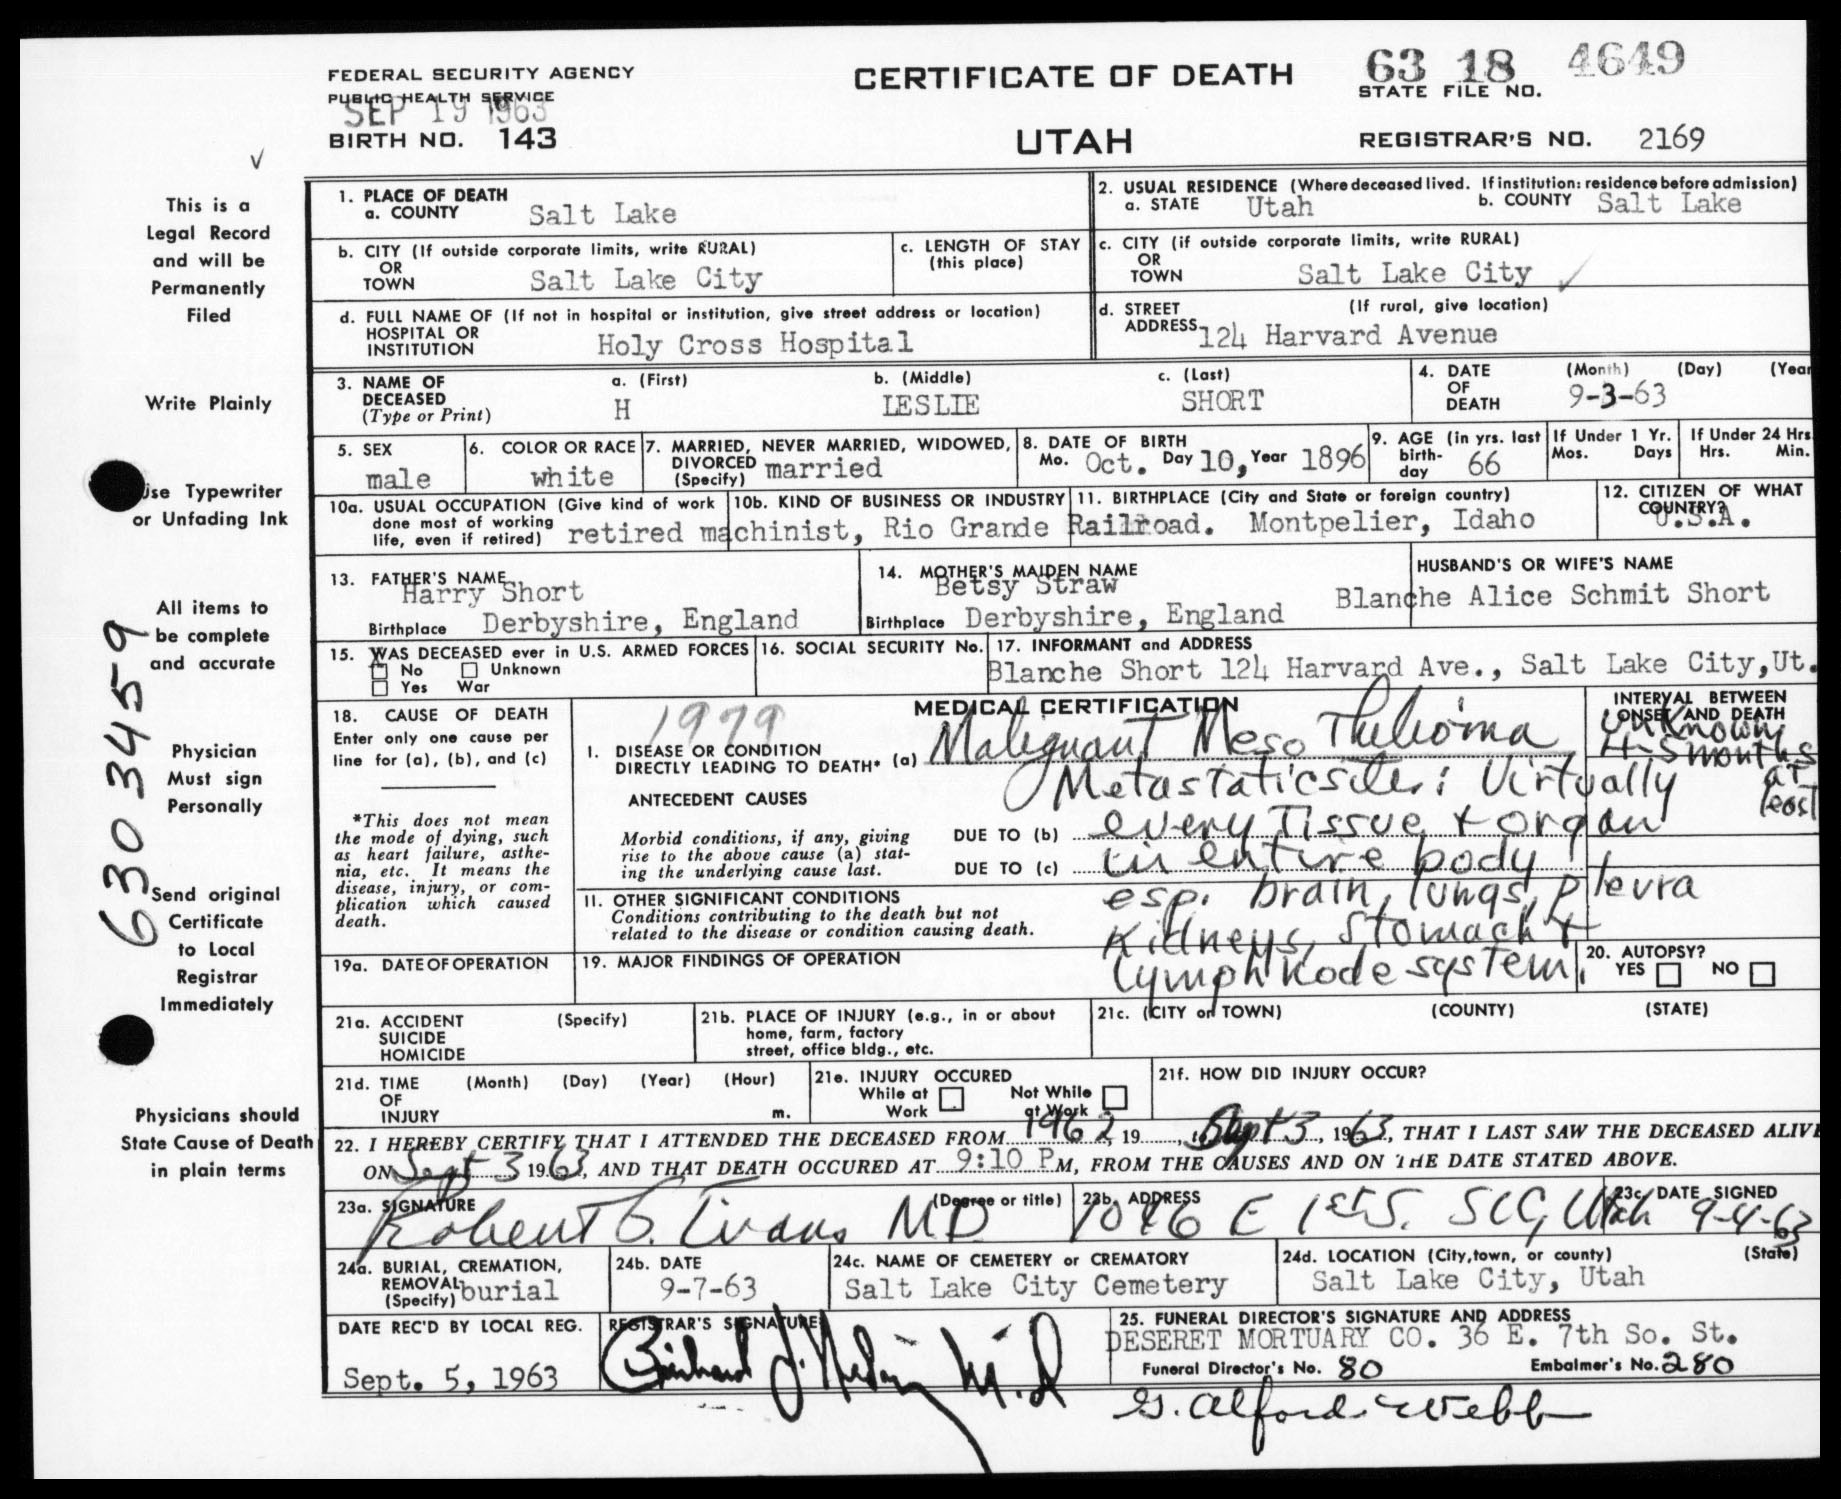 FEDERAL SECURITY AGENCY
PUBLIC HEALTH SERVICE
SEP 19 1963
BIRTH NO. 143
CERTIFICATE OF DEATH
UTAH
63 18 4649
STATE FILE NO.
REGISTRAR'S NO. 2169
This is a
Legal Record
and will be
Permanently
Filed
Write Plainly
Use Typewriter
or Unfading Ink
All items to
be complete
and accurate
Physician
Must sign
Personally
Send original
Certificate
to Local
Registrar
Immediately
Physicians should
State Cause of Death
in plain terms
6303459
1. PLACE OF DEATH
a. COUNTY Salt Lake
2. USUAL RESIDENCE (Where deceased lived. If institution: residence before admission)
a. STATE Utah b. COUNTY Salt Lake
b. CITY (If outside corporate limits, write RURAL)
OR
TOWN Salt Lake City
c. LENGTH OF STAY
(this place)
c. CITY (if outside corporate limits, write RURAL)
OR
TOWN Salt Lake City ✓
d. FULL NAME OF (If not in hospital or institution, give street address or location)
HOSPITAL OR
INSTITUTION Holy Cross Hospital
d. STREET (If rural, give location)
ADDRESS 124 Harvard Avenue
3. NAME OF
DECEASED
(Type or Print)
a. (First) b. (Middle) c. (Last)
H LESLIE SHORT
4. DATE (Month) (Day) (Year
OF
DEATH 9-3-63
5. SEX
male
6. COLOR OR RACE
white
7. MARRIED, NEVER MARRIED, WIDOWED,
DIVORCED
(Specify) married
8. DATE OF BIRTH
Mo. Oct. Day 10, Year 1896
9. AGE (in yrs. last
birth-
day 66
If Under 1 Yr.
Mos. Days
If Under 24 Hrs
Hrs. Min.
10a. USUAL OCCUPATION (Give kind of work
done most of working
life, even if retired)
10b. KIND OF BUSINESS OR INDUSTRY
retired machinist, Rio Grande Railroad.
11. BIRTHPLACE (City and State or foreign country)
Montpelier, Idaho
12. CITIZEN OF WHAT
COUNTRY?
U.S.A.
13. FATHER'S NAME
Harry Short
Birthplace Derbyshire, England
14. MOTHER'S MAIDEN NAME
Betsy Straw
Birthplace Derbyshire, England
HUSBAND'S OR WIFE'S NAME
Blanche Alice Schmit Short
15. WAS DECEASED ever in U.S. ARMED FORCES
x
No Unknown
Yes War
16. SOCIAL SECURITY No.
17. INFORMANT and ADDRESS
Blanche Short 124 Harvard Ave., Salt Lake City, Ut.
18. CAUSE OF DEATH
Enter only one cause per
line for (a), (b), and (c)
*This does not mean
the mode of dying, such
as heart failure, asthe-
nia, etc. It means the
disease, injury, or com-
plication which caused
death.
1979
MEDICAL CERTIFICATION
I. DISEASE OR CONDITION
DIRECTLY LEADING TO DEATH* (a) Malignant Meso Thelioma
ANTECEDENT CAUSES
Morbid conditions, if any, giving
rise to the above cause (a) stat-
ing the underlying cause last.
Metastatic sites: Virtually
DUE TO (b) every Tissue + organ
DUE TO (c) in entire body
esp. brain, lungs, plevra
Kidneys, Stomach +
lymph node system.
INTERVAL BETWEEN
ONSET AND DEATH
unknown
4-5 months
at
least
11. OTHER SIGNIFICANT CONDITIONS
Conditions contributing to the death but not
related to the disease or condition causing death.
19a. DATE OF OPERATION
19. MAJOR FINDINGS OF OPERATION
20. AUTOPSY?
YES NO
21a. ACCIDENT (Specify)
SUICIDE
HOMICIDE
21b. PLACE OF INJURY (e.g., in or about
home, farm, factory
street, office bldg., etc.
21c. (CITY or TOWN) (COUNTY) (STATE)
21d. TIME (Month) (Day) (Year) (Hour)
OF
INJURY m.
21e. INJURY OCCURED
While at Not While
Work at Work
21f. HOW DID INJURY OCCUR?
22. I HEREBY CERTIFY THAT I ATTENDED THE DECEASED FROM 1962, 19, to Sept 3, 1963, THAT I LAST SAW THE DECEASED ALIVE
ON Sept 3 1963, AND THAT DEATH OCCURED AT 9:10 P M, FROM THE CAUSES AND ON THE DATE STATED ABOVE.
23a. SIGNATURE (Degree or title)
Robert G. Evans MD
23b. ADDRESS
1046 E 1st S. SLC, Utah
23c. DATE SIGNED
9-4-63
24a. BURIAL, CREMATION,
REMOVAL
(Specify) burial
24b. DATE
9-7-63
24c. NAME OF CEMETERY or CREMATORY
Salt Lake City Cemetery
24d. LOCATION (City, town, or county) (State)
Salt Lake City, Utah
DATE REC'D BY LOCAL REG.
Sept. 5, 1963
REGISTRAR'S SIGNATURE
M.D
25. FUNERAL DIRECTOR'S SIGNATURE AND ADDRESS
DESERET MORTUARY CO. 36 E. 7th So. St.
Funeral Director's No. 80 Embalmer's No. 280
G. Alford Webb